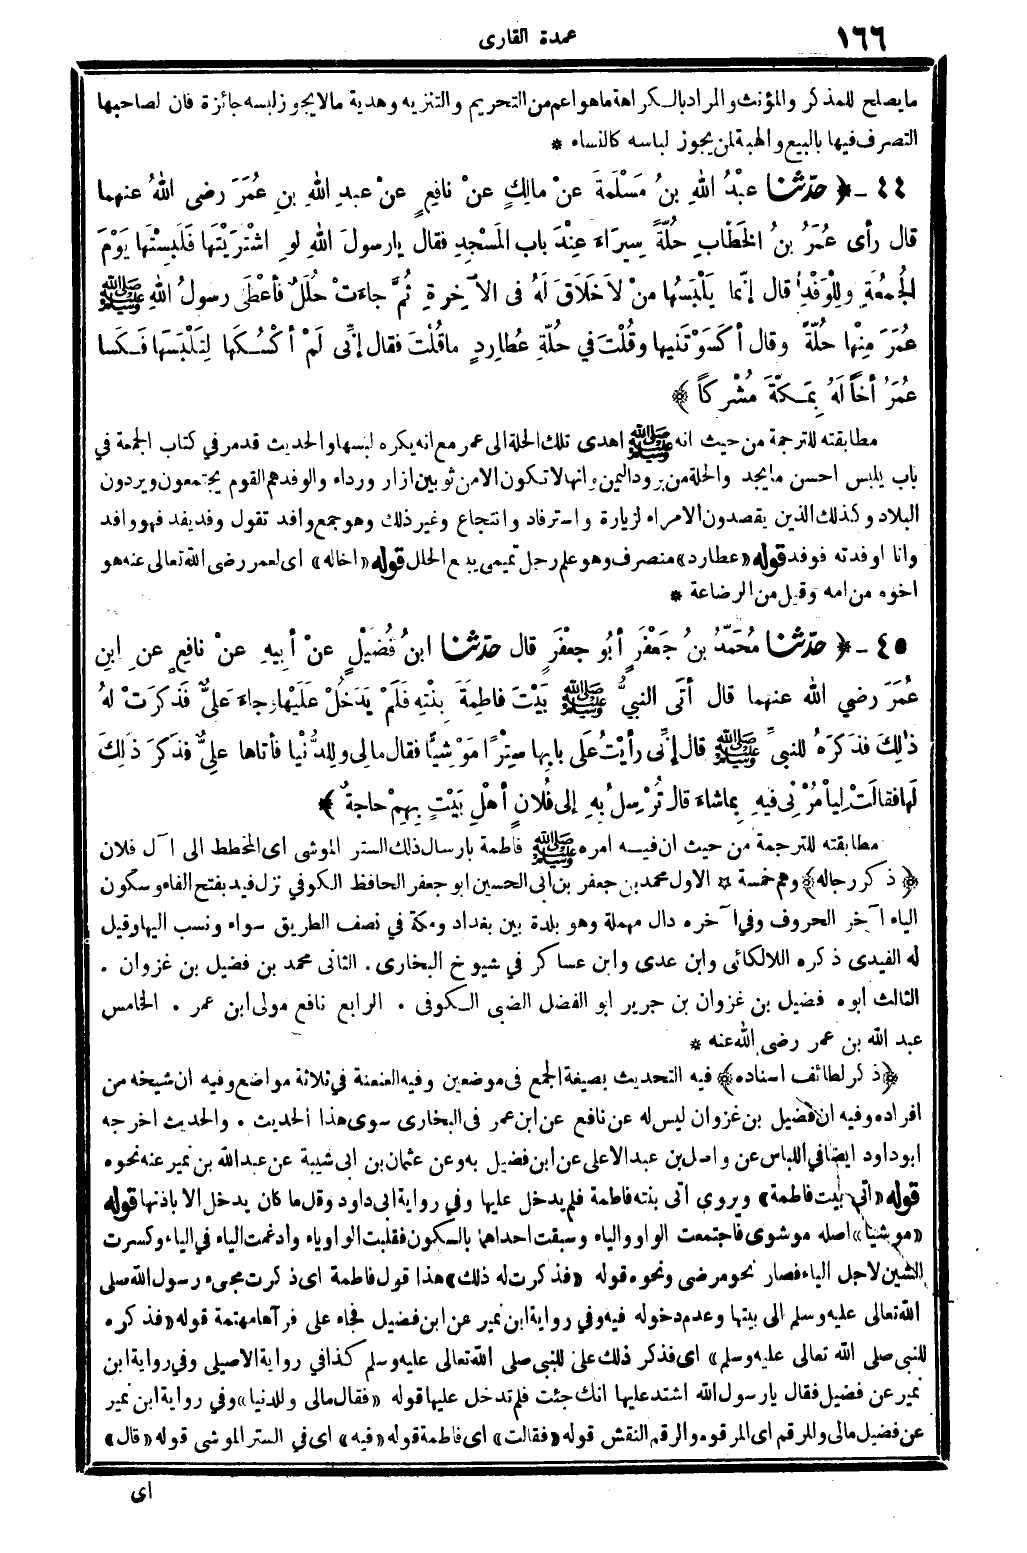 ١٦٦
عمدة القارى
ما يصلح للمذكر والمؤنث والمراد بالكراهة ما هو اعم من التحريم والتنزيه وهدية ما لا يجوز لبسه جائزة فان لصاحبها
التصرف فيها بالبيع والهبة لمن يجوز لباسه كالنساء *
٤٤ - ﴿ حدّثنا عبْدُ اللهِ بنُ مَسْلَمَةَ عنْ مالِكٍ عنْ نافِعٍ عنْ عبدِ اللهِ بنِ عُمَرَ رضى اللهُ عنهما
قال رأى عُمَرُ بنُ الخَطَّابِ حُلّةً سِيَرَاءَ عِنْدَ بابِ المَسْجِدِ فقال يارسولَ اللهِ لوِ اشْتَرَيْتَها فَلَبِسْتَها يَوْمَ
الجُمعَةِ ولِلْوَفْدِ قال إنّما يَلْبَسُها مَنْ لاَ خَلاَقَ لَهُ فى الآخِرةِ ثُمَّ جاءَتْ حُلَلٌ فأعْطَى رسولُ اللهِ ﷺ
عُمَرَ مِنْها حُلّةً وقال أكَسَوْتَنِيها وقُلْتَ في حُلّةِ عُطارِدٍ ماقُلْتَ فقال إنِّى لَمْ أكْسُكَها لِتَلْبَسَها فَكَسا
عُمَرُ أخاً لَهُ بِمَكّةَ مُشْرِكاً ﴾
مطابقته للترجمة من حيث انه ﷺ اهدى تلك الحلة الى عمر مع انه يكره لبسها والحديث قد مر في كتاب الجمعة في
باب يلبس احسن ما يجد والحلة من برود اليمن وانها لا تكون الا من ثوبين ازار ورداء والوفد هم القوم يجتمعون ويردون
البلاد وكذلك الذين يقصدون الامراء لزيارة واسترفاد وانتجاع وغير ذلك وهو جمع وافد تقول وفد يفد فهو وافد
وانا اوفدته فوفد قوله «عطارد» منصرف وهو علم رجل تميمى يبيع الحلل قوله «اخا له» اى لعمر رضى الله تعالى عنه هو
اخوه من امه وقيل من الرضاعة *
٤٥ - ﴿ حدّثنا مُحَمّدُ بنُ جَعْفَرٍ أبُو جعْفَرٍ قال حدّثنا ابنُ فُضَيْلٍ عنْ أبِيهِ عنْ نافِعٍ عنِ ابنِ
عُمَرَ رضي الله عنهما قال أتَى النبيُّ ﷺ بَيْتَ فاطِمَةَ بِنْتِهِ فَلَمْ يَدخُلْ عَلَيْها وجاءَ عَلِيٌّ فَذَكرَتْ لهُ
ذٰلِكَ فَذَكَرَهُ للنبيِّ ﷺ قال إنِّى رأيْتُ عَلَى بابِها سِتْرًا مَوْشِيًّا فقال مالِى ولِلدُّنْيا فأتاها علِيٌّ فذَكَرَ ذٰلِكَ
لَها فقالَتْ لِيأْمُرْنِى فيهِ بِماشاءَ قال تُرْسِلُ بهِ إلى فُلانٍ أهْلِ بَيْتٍ بِهِمْ حاجةٌ ﴾
مطابقته للترجمة من حيث ان فيه امره ﷺ فاطمة بارسال ذلك الستر الموشى اى المخطط الى آل فلان
﴿ ذكر رجاله﴾ وهم خمسة * الاول محمد بن جعفر بن ابى الحسين ابو جعفر الحافظ الكوفي نزل فيد بفتح الفاء وسكون
الياء آخر الحروف وفي آخره دال مهملة وهو بلدة بين بغداد ومكة في نصف الطريق سواء ونسب اليها وقيل
له الفيدى ذكره اللالكائى وابن عدى وابن عساكر في شيوخ البخارى . الثانى محمد بن فضيل بن غزوان .
الثالث أبوه فضيل بن غزوان بن جرير ابو الفضل الضبى الكوفى . الرابع نافع مولى ابن عمر . الخامس
عبد الله بن عمر رضى الله عنه *
﴿ذكر لطائف اسناده﴾ فيه التحديث بصيغة الجمع فى موضعين وفيه العنعنة في ثلاثة مواضع وفيه ان شيخه من
افراده وفيه ان فضيل بن غزوان ليس له عن نافع عن ابن عمر فى البخارى سوى هذا الحديث . والحديث اخرجه
ابو داود ايضا في اللباس عن واصل بن عبد الاعلى عن ابن فضيل به وعن عثمان بن ابى شيبة عن عبد الله بن نمير عنه نحوه
قوله «اتى بيت فاطمة» ويروى اتى بنته فاطمة فلم يدخل عليها وفي رواية ابى داود وقل ما كان يدخل الا باذنها قوله
«موشيا» اصله موشوى فاجتمعت الواو والياء وسبقت احداهما بالسكون فقلبت الواو ياء وادغمت الياء في الياء وكسرت
الشين لاجل الياء فصار نحو مرضى ونحوه قوله «فذكرت له ذلك» هذا قول فاطمة اى ذكرت مجىء رسول الله صلى
الله تعالى عليه وسلم الى بيتها وعدم دخوله فيه وفي رواية ابن نمير عن ابن فضيل فجاء على فرآها مهتمة قوله «فذكره
للنبى صلى الله تعالى عليه وسلم» اى فذكر ذلك على للنبى صلى الله تعالى عليه وسلم كذا في رواية الاصيلى وفي رواية ابن
نمير عن فضيل فقال يا رسول الله اشتد عليها انك جئت فلم تدخل عليها قوله «فقال مالى وللدنيا» وفي رواية ابن نمير
عن فضيل مالى وللرقم اى المرقوم والرقم النقش قوله «فقالت» اى فاطمة قوله «فيه» اى في الستر الموشى قوله «قال»
اى